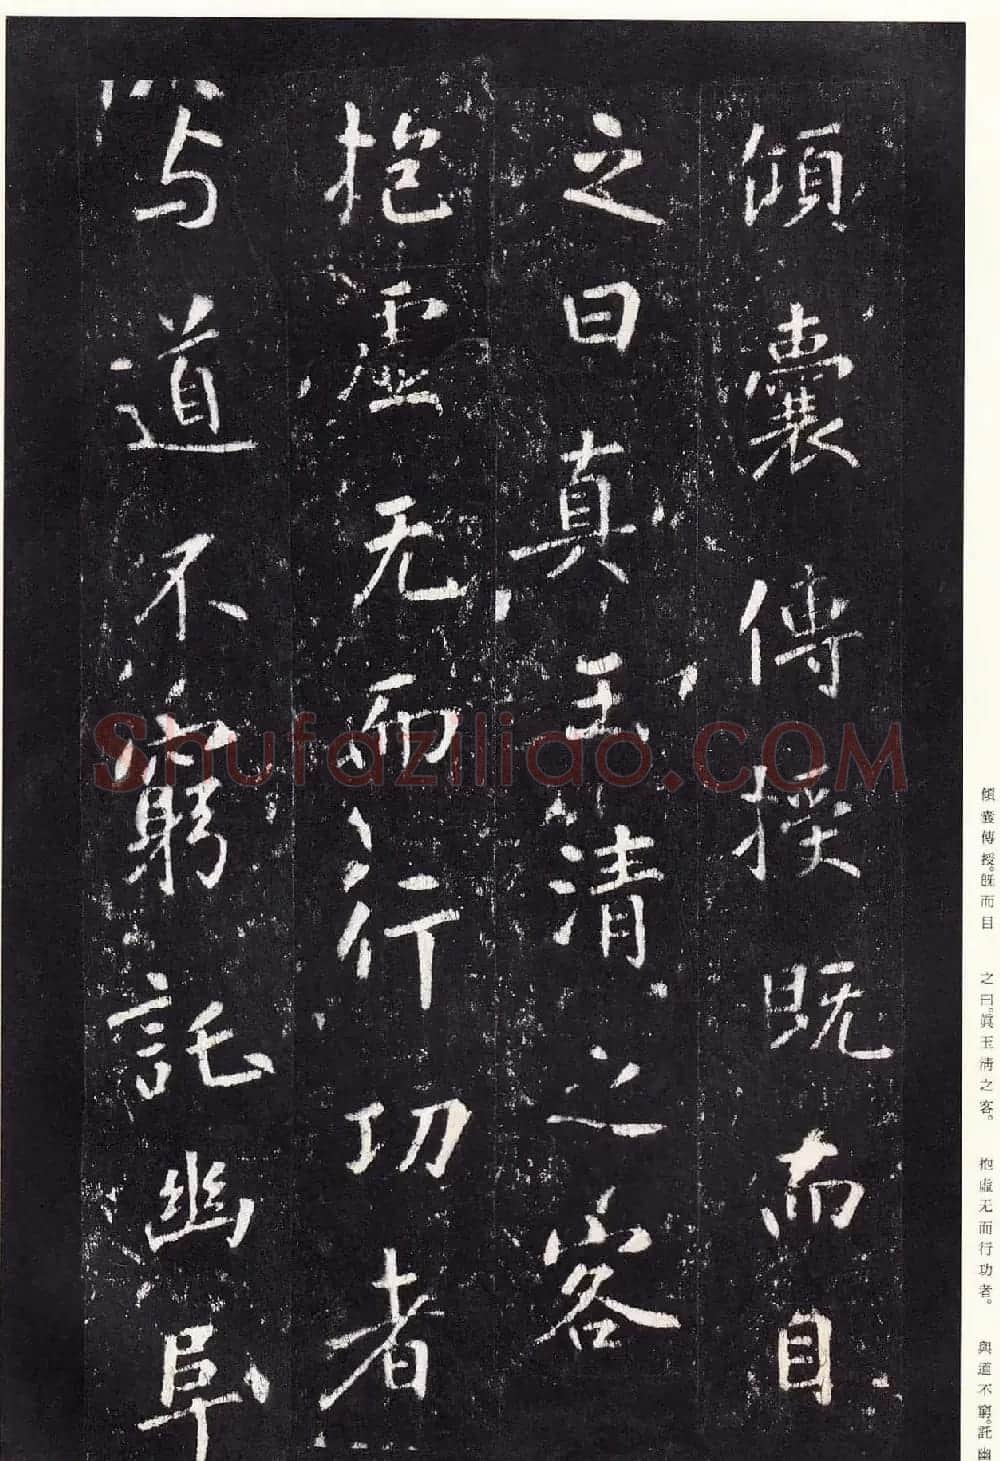 傾囊傳授既而目
之曰真玉清之客
抱虛无而行功者
与道不窮託幽阜
ShufaziliaO.COM
傾囊傳授。既而目 之曰。眞玉淸之客。 抱虛无而行功者。 與道不窮。託幽